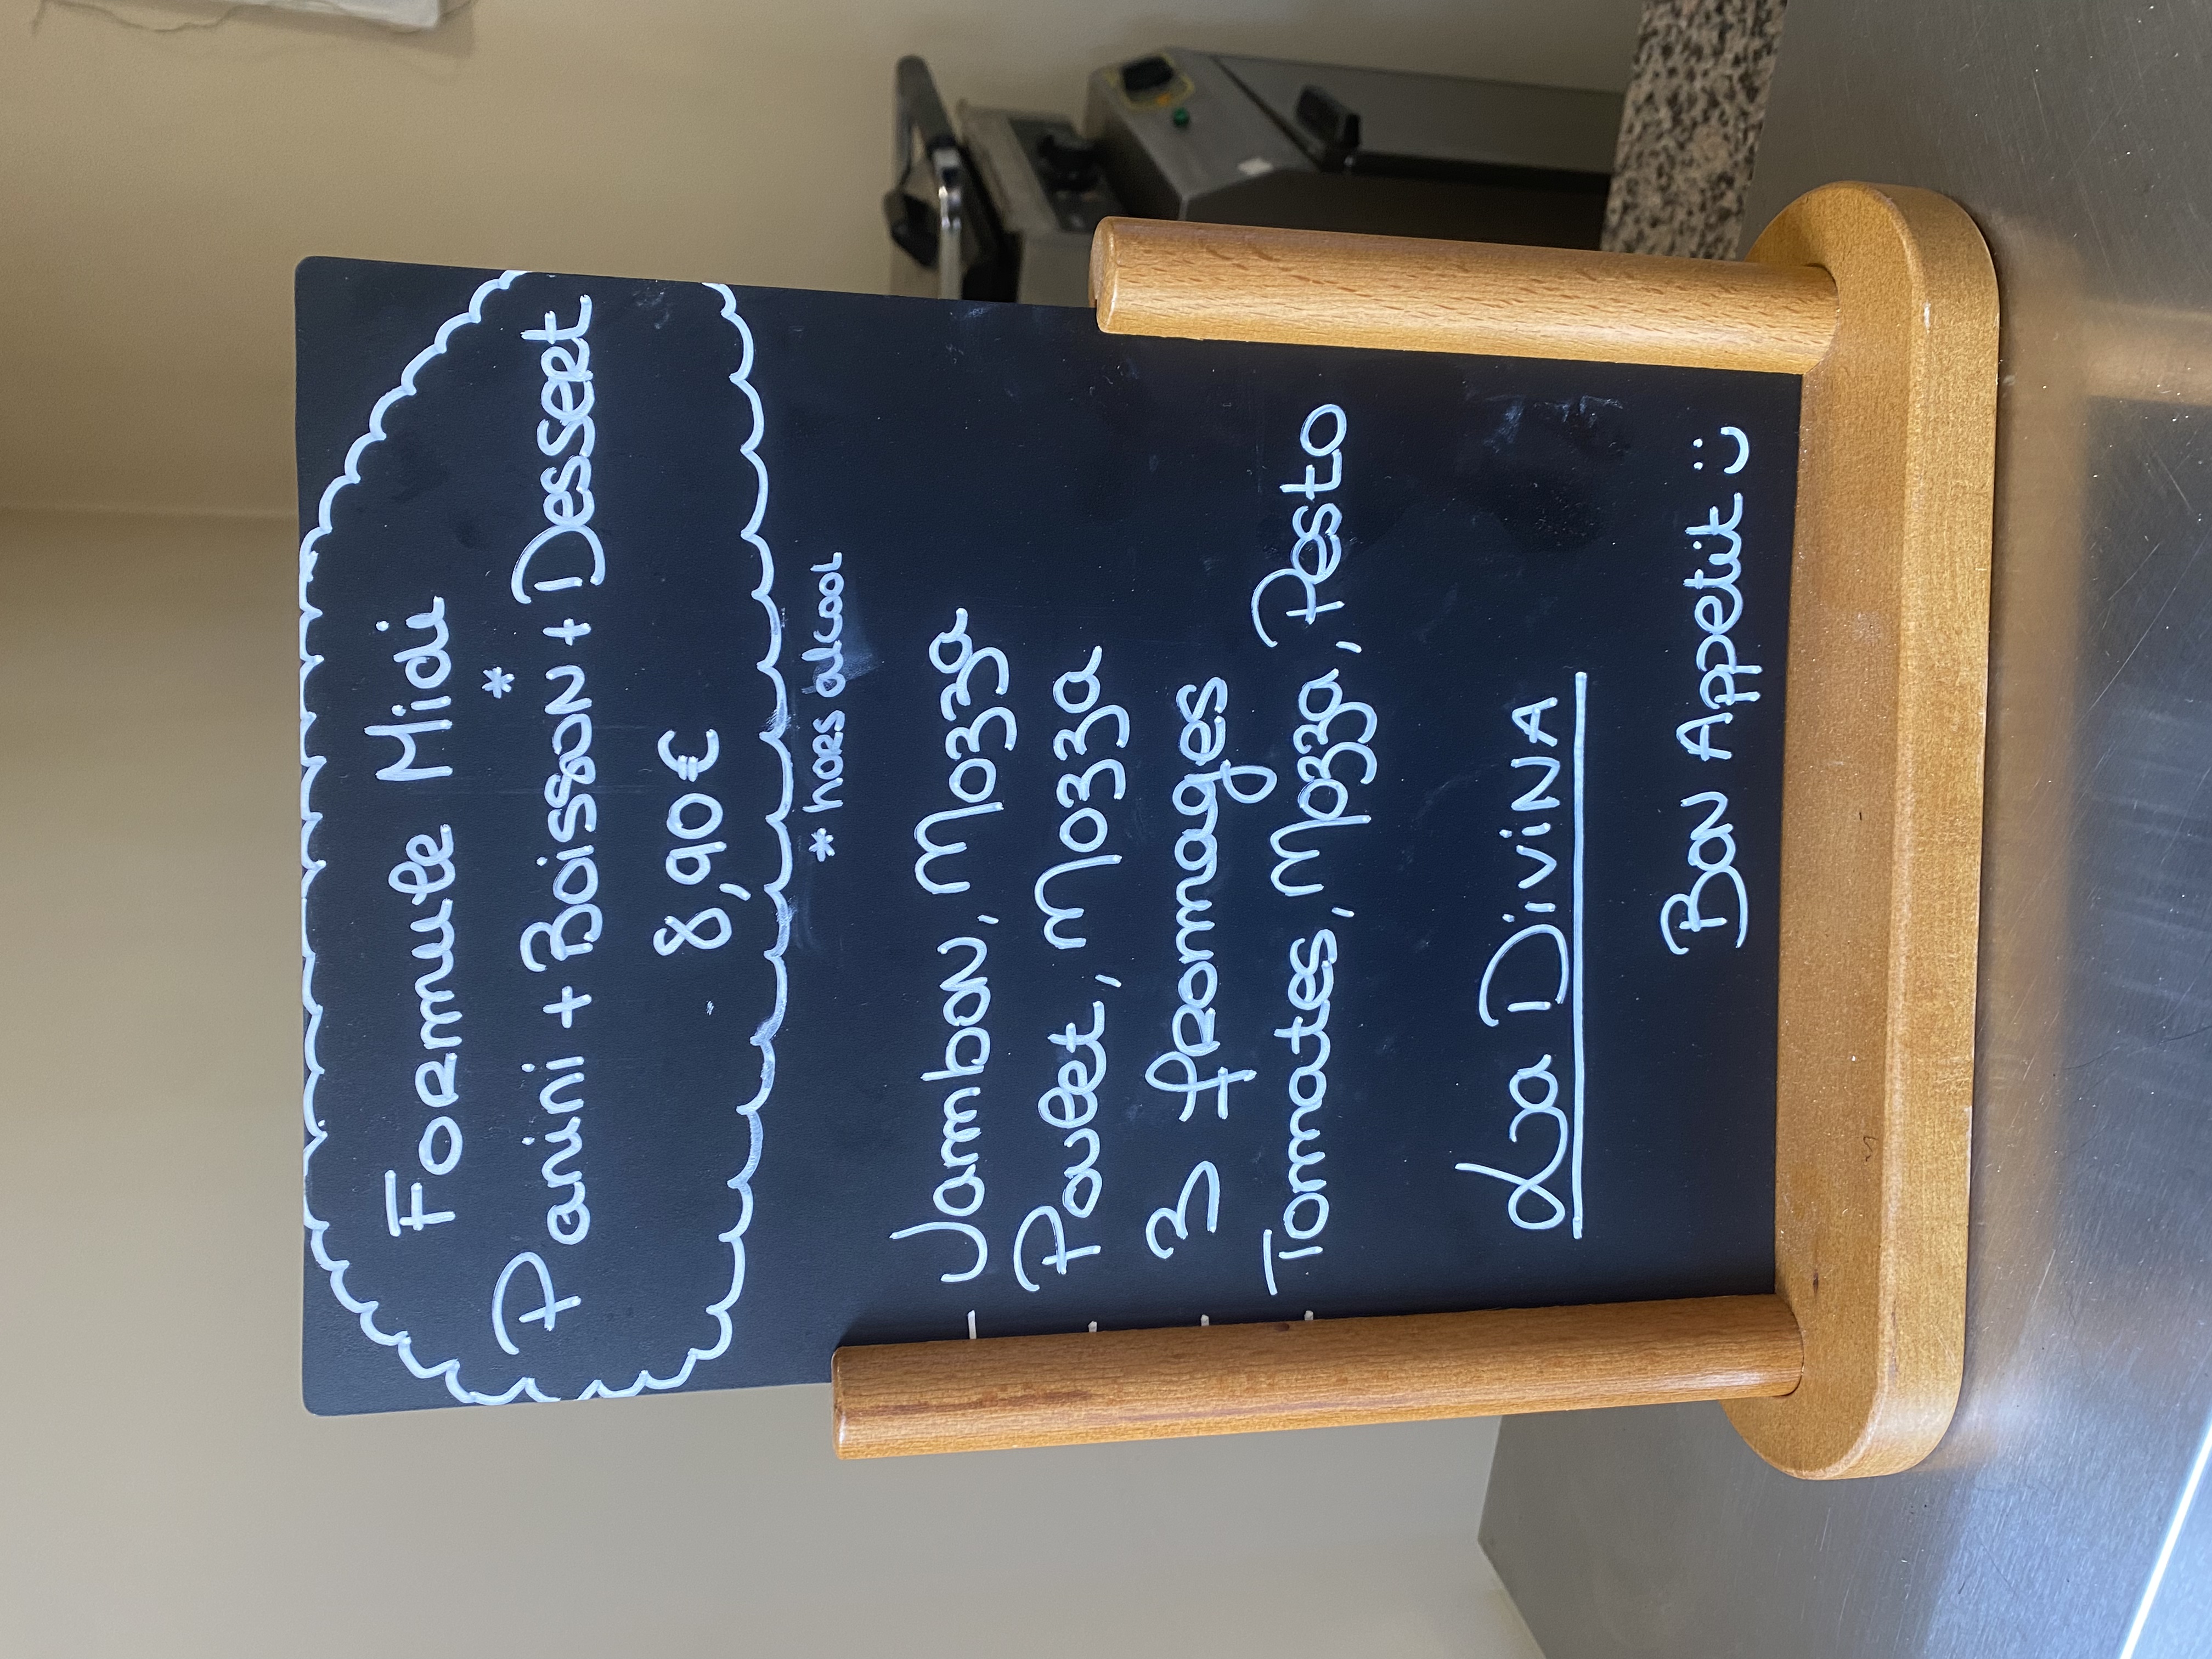 Formule Midi
Panini + Boisson* + Dessert
8,90€
* hors alcool
- Jambon, Mozza
- Poulet, Mozza
- 3 fromages
- Tomates, Mozza, Pesto
La DiviNA
Bon Appetit :)